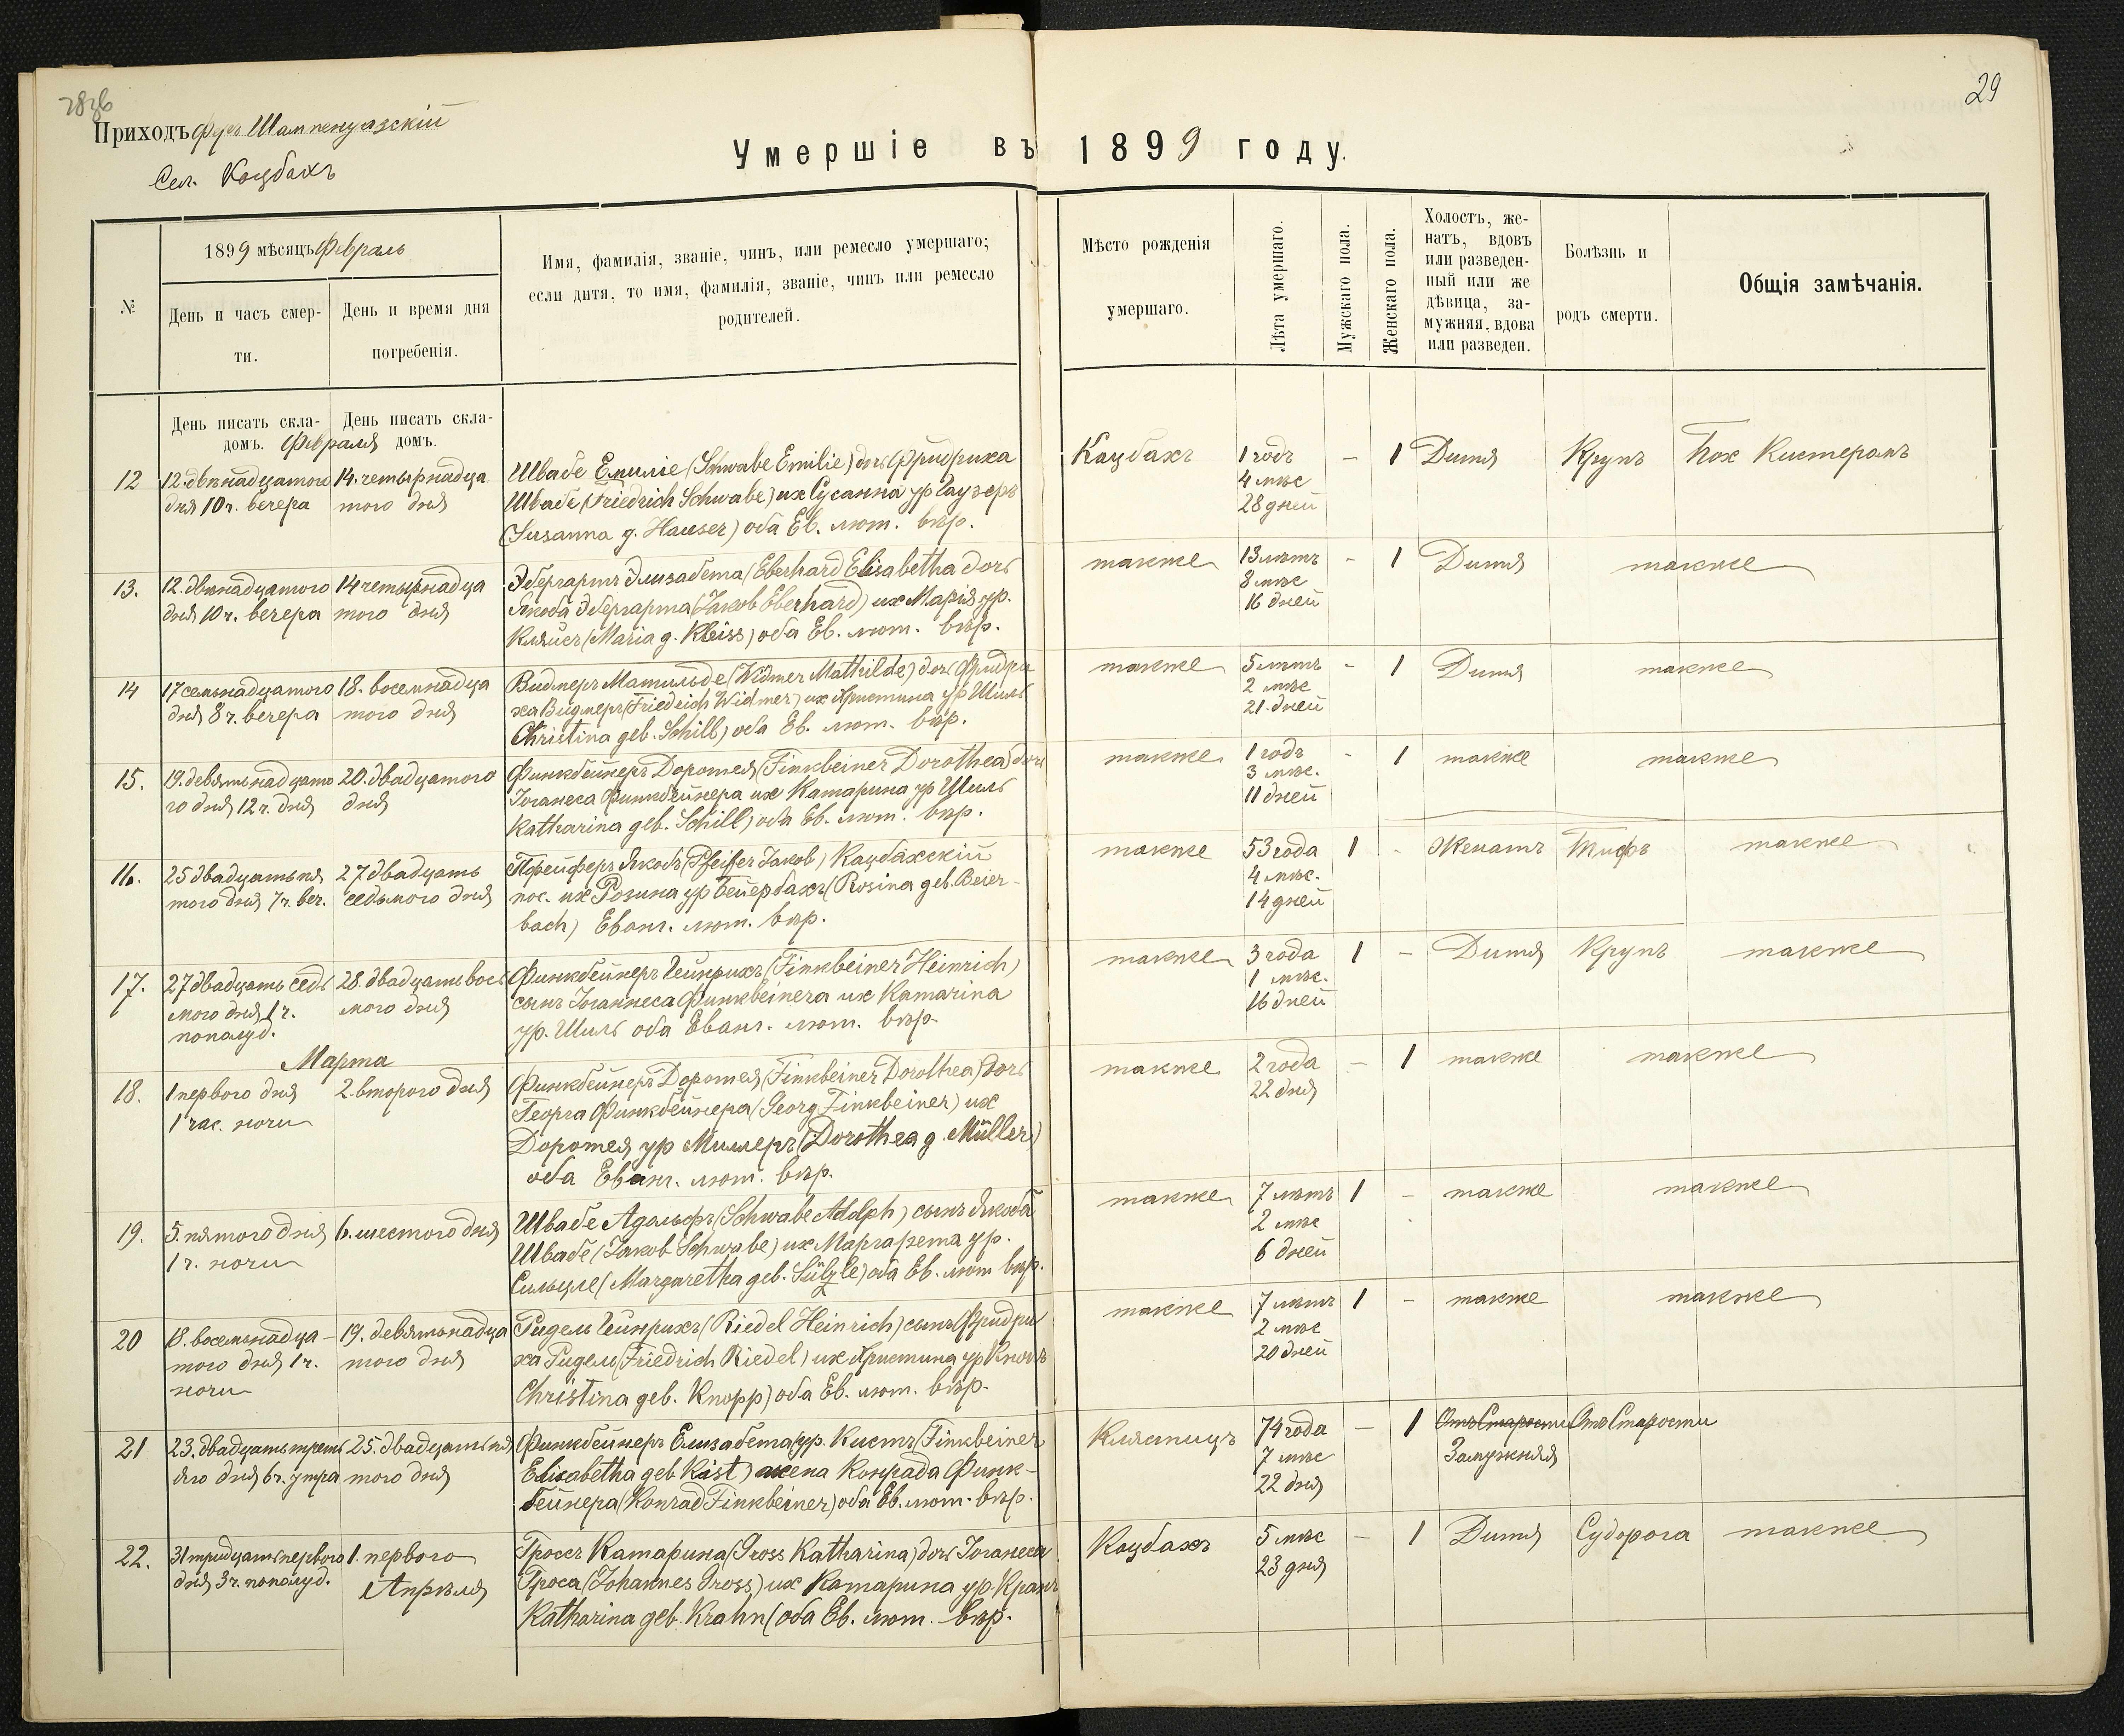 29
Приходъ Фер. Шампенуазскій
Сел. Кацбахъ
Умершіе въ 1899 году.
№
1899 мѣсяцъ Февраль
День и часъ смер-
ти.
День и время дня
погребенія.
Имя, фамилія, званіе, чинъ, или ремесло умершаго;
если дитя, то имя, фамилія, званіе, чинъ или ремесло
родителей.
Мѣсто рожденія
умершаго.
Лѣта умершаго.
Мужскаго пола.
Женскаго пола.
Холостъ, же-
натъ, вдовъ
или разведен-
ный или же
дѣвица, за-
мужняя, вдова
или разведен.
Болѣзнь и
родъ смерти.
Общія замѣчанія.
День писать скла-
домъ. Февраля
День писать скла-
домъ.
12
12. двѣнадцатого
дня 10 ч. вечера
14. четырнадца
того дня
Швабе Емиліе (Schwabe Emilie) дочь Фридриха
Швабе (Friedrich Schwabe) иж Сусанна ур Гаузеръ
(Susanna g. Hauser) оба Ев. лют. вѣр.
Кацбахъ
1 годъ
4 мѣс
28 дней
–
1
Дитя
Крупъ
Пох Кистеромъ
13.
12. двѣнадцатого
дня 10 ч. вечера
14 четырнадца
того дня
Эбергартъ Элизабета (Eberhard Elisabetha дочь
Якоба Эбергарта (Jakob Eberhard) иж Марія ур.
Кляйсъ (Maria g. Kleiss) оба Ев. лют. вѣр.
также
13 лѣтъ
8 мѣс
16 дней
-
1
Дитя
также
14
17 семьнадцатого
дня 8 ч. вечера
18. восемнадца
того дня
Видмеръ Матильде (Widmer Mathilde) дочь Фидри
ха Видмеръ (Friedrich Widmer) иж Христина ур Шиль
Christina geb. Schill) оба Ев. лют. вѣр.
также
5 лѣтъ
2 мѣс
21. дней
-
1
Дитя
также
15.
19. девятьнадцато
го дня 12 ч. дня
20. двадцатого
дня
Финкбейнеръ Доротея (Finkbeiner Dorothea) дочь
Іоганеса Финкбейнера иж Катарина ур Шиль
Katharina geb. Schill) оба Ев. лют. вѣр.
также
1 годъ
3 мѣс.
11 дней
-
1
также
также
16.
25 двадцать пя
того дня 7 ч. веч.
27 двадцать
седьмого дня
Пфейферъ Якобъ (Pfeifer Jakob) Кацбахскій
пос. иж Розина ур Бейербахъ (Rosina geb. Beier-
bach) Еванг. лют. вѣр.
также
53 года
4 мѣс.
14 дней
1
-
Женатъ
Тифъ
также
17.
27 двадцать седь
мого дня 1 ч.
пополуд.
28. двадцать вось
мого дня
Финкбейнеръ Гейнрихъ (Finkbeiner Heinrich)
сынъ Іоганнеса Финкbeinerа иж Катarina
ур. Шиль оба Еванг. лют. вѣр.
также
3 года
1 мѣс.
16 дней
1
–
Дитя
Крупъ
также
Марта
18.
1 первого дня
1 час. ночи
2. второго дня
Финкбейнеръ Доротея (Finkbeiner Dorothea) дочь
Георга Финкбейнера (Georg Finkbeiner) иж
Доротея ур Миллеръ (Dorothea g. Müller)
оба Еванг. лют. вѣр.
также
2 года
22 дня
–
1
также
также
19.
5. пятого дня
1 ч. ночи
6. шестого дня
Швабе Адольфъ (Schwabe Adolph) сынъ Якоба
Швабе (Jakob Schwabe) иж Маргарета ур.
Сильцле (Margaretha geb. Sülzle) оба Ев. лют вѣр.
также
7 лѣтъ
2 мѣс
6 дней
1
–
также
также
20
18. восемьнадца-
того дня 1 ч.
ночи
19. девятьнадца
того дня
Ридель Гейнрихъ (Riedel Heinrich) сынъ Фридри
ха Ридель (Friedrich Riedel) иж Христина ур Кнопъ
Christina geb. Knopp) оба Ев. лют. вѣр.
также
7 лѣтъ
2 мѣс
20 дней
1
–
также
также
21
23. двадцать треть
яго дня 6 ч. утра
25. двадцать пя
того дня
Финкбейнеръ Елизабета (ур. Кистъ (Finkbeiner
Elisabetha geb Kist) жена Конрада Финк-
бейнера (Konrad Finkbeiner) оба Ев. лют. вѣр.
Клястицъ
74 года
7 мѣс
22 дня
–
1
Отъ Старости
Замужняя
Отъ Старости
22.
31 тридцать первого
дня 3 ч. пополуд.
1. первого
Апрѣля
Гросъ Катарина (Gross Katharina) дочь Іоганеса
Гроса (Johannes Gross) иж Катарина ур. Кранъ
Katharina geb. Krahn (оба Ев. лют. вѣр.
Кацбахъ
5 мѣс
23 дня
–
1
Дитя
Судорога
также